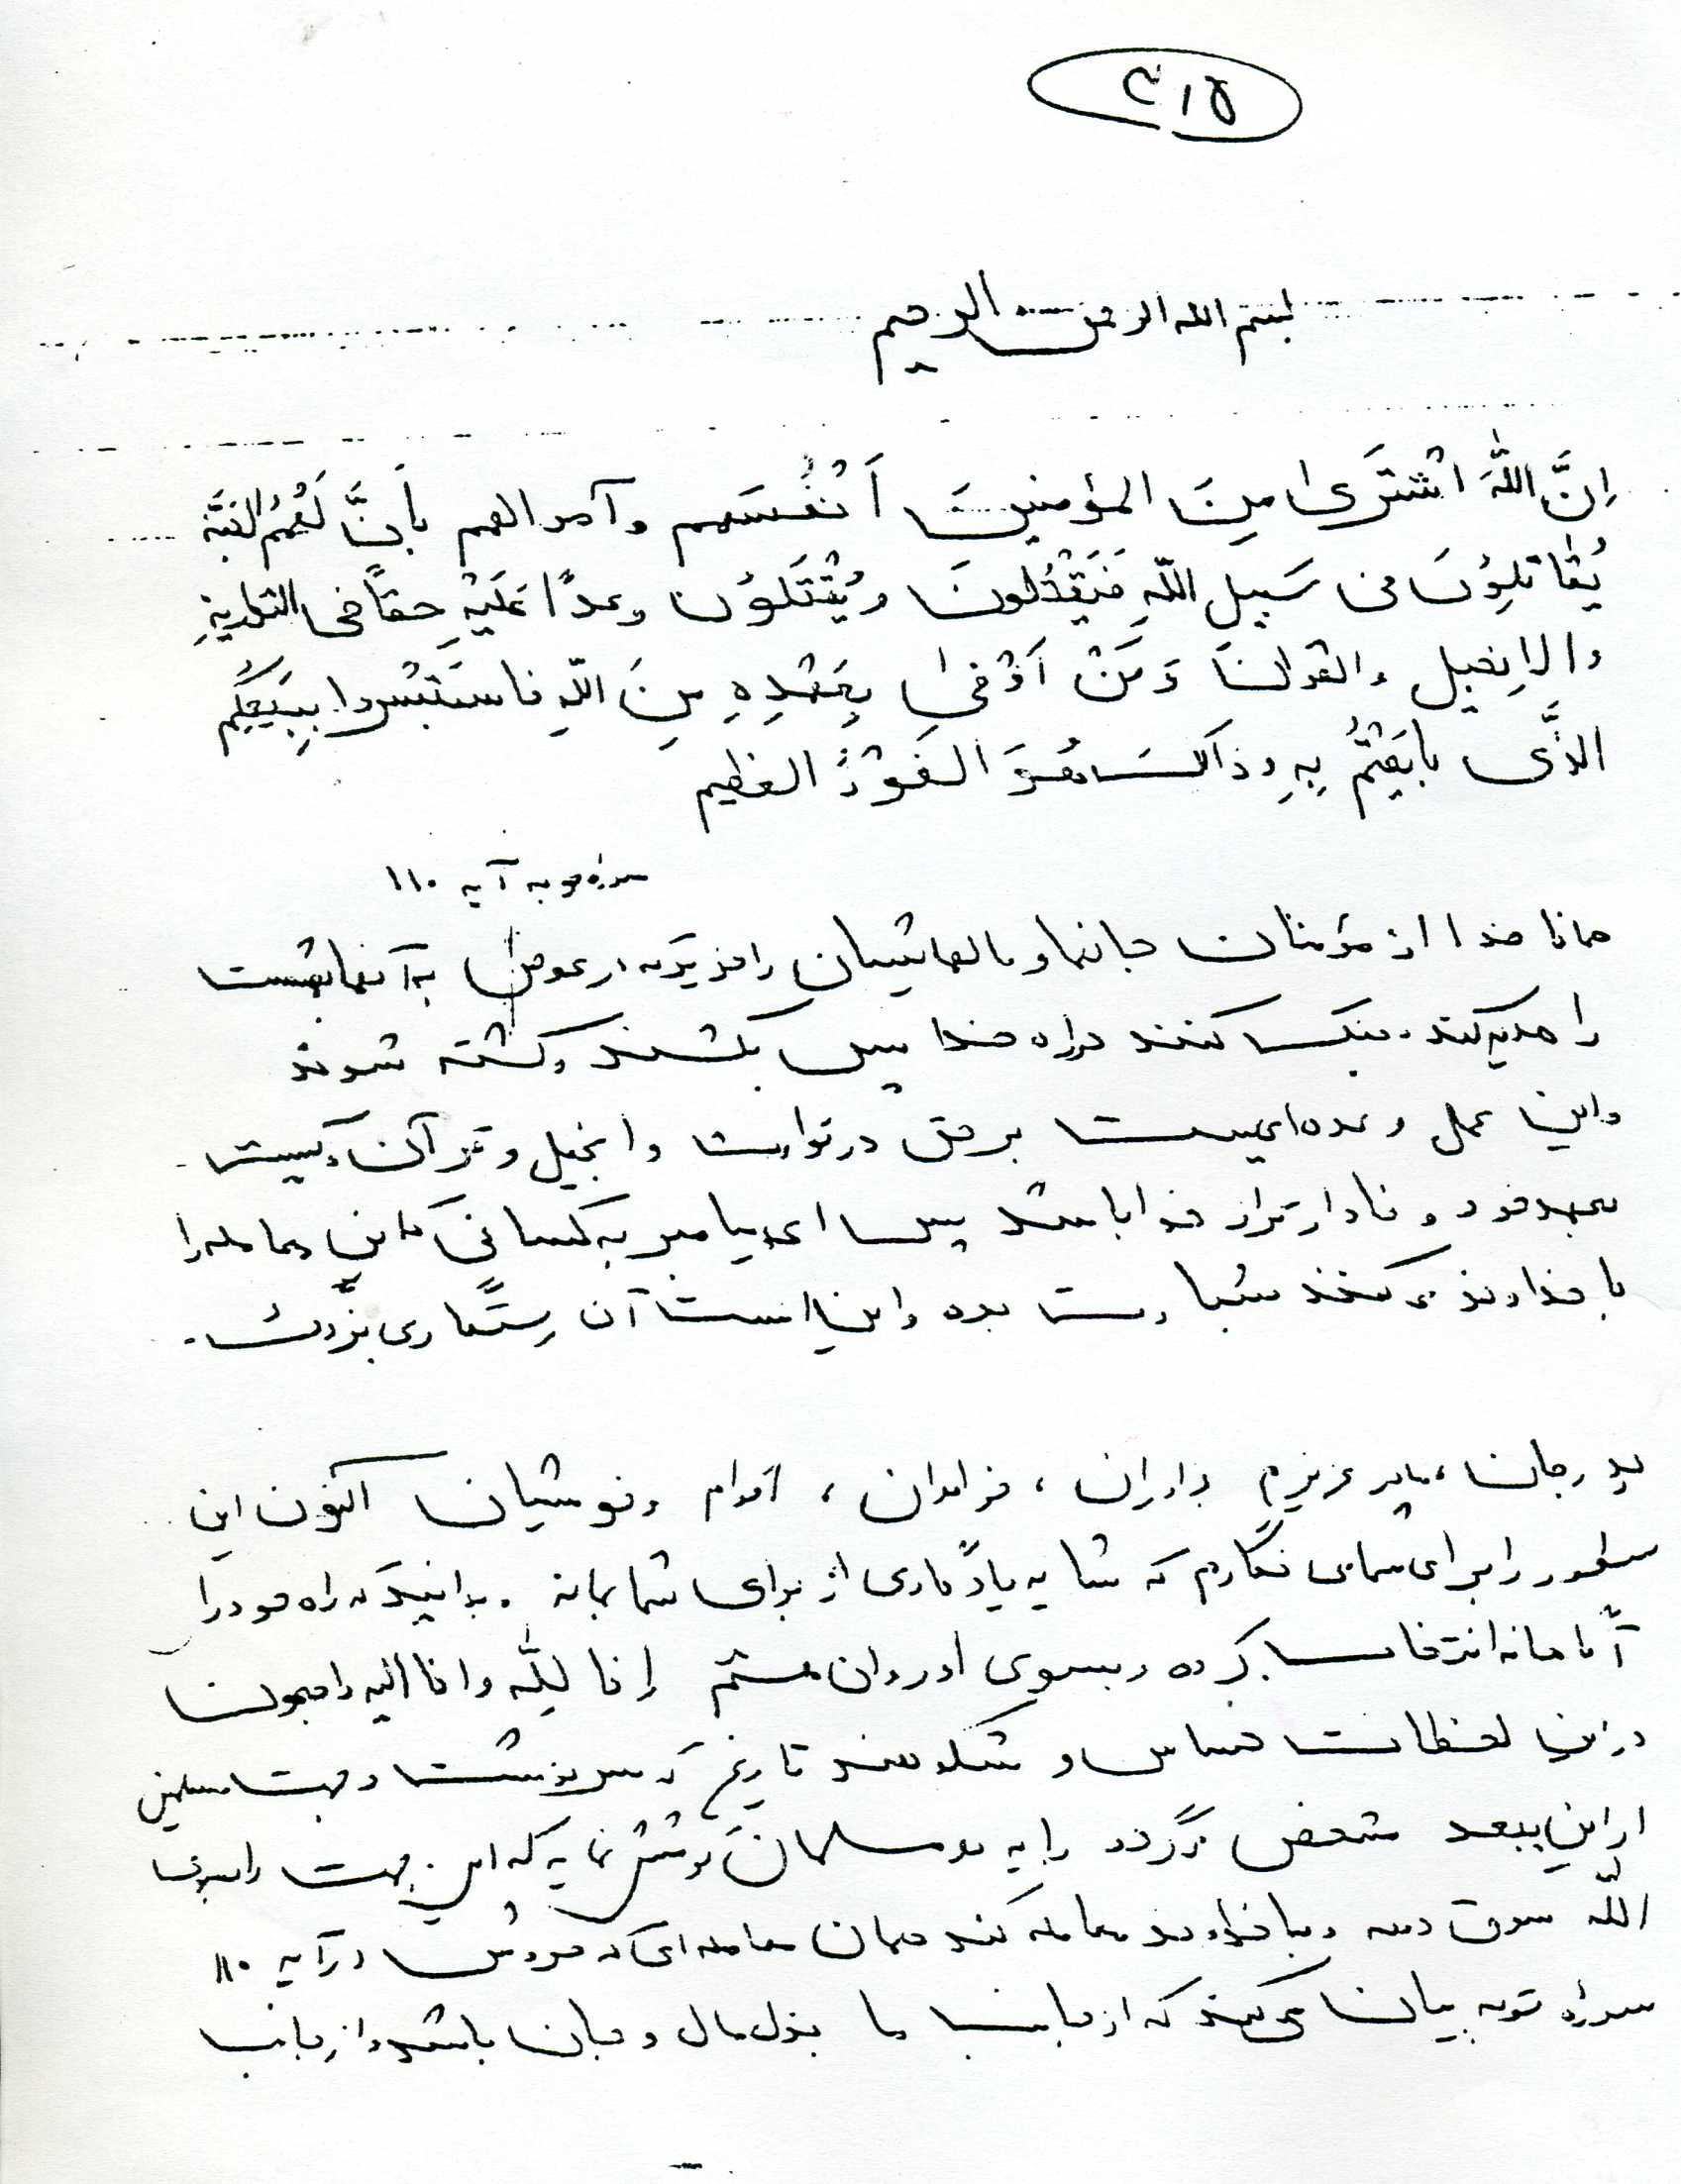 بسم الله الرحمن الرحیم
اِنَّ اللّٰهَ اشْتَرَىٰ مِنَ المؤمنینَ اَنْفُسَهم وآموالهم بأَنَّ لَهُمُ الجَنَّة
یُقاتلِوُنَ فی سَبیلِ اللّهِ فَیَقْتُلونَ وَیُقْتَلوُن وعدًا عَلَیْهِ حقاً فی التوریةِ
والاِنجیل والقرانَ وَمَنْ اَوْفیٰ بِعَهْدِهِ مِنَ اللّهِ فاسَتَبْشروا بِبَیعِکُم
الذَّی بایَعْتُمْ بِهِ وذالکَ هُوَ الفَوْزُ العظیم
سوره توبه آیه ۱۱۰
همانا خدا از مؤمنان جانها و مالهایشان را خریده در عوض به آنها بهشت
را هدیه کند. جنگ کنند در راه خدا پس بکشند و کشته شوند
واین عمل وعده‌ایست بر حق در تورات وانجیل وقرآن وکیست
بعهد خود وفادارتر از خدا باشد پس ای پیامبر به کسانی که این معامله را
با خداوند می کنند بشارت بده واین است آن رستگاری بزرگ.
پدر جان، مادر عزیزم برادران، خواهران، اقوام وخویشان اکنون این
سطور را برای شما می نگارم که شاید یادگاری از برای شما بماند. بدانید که راه خود را
آگاهانه انتخاب کرده وبسوی او روان هستم اِنا لِلّٰه وانا الیه راجعون
در این لحظات حساس و شکوهمند تاریخ که سرنوشت وجهت مسلمین
از این ببعد مشخص میگردد باید هر مسلمان کوشش نماید که این جهت را بسوی
اللّه سوق دهد وبا خداوند معامله کند همان معامله‌ای که خودش در آیه ۱۱۰
سوره توبه بیان می کند که از جانب ما بذل مال و جان باشد و از جانب